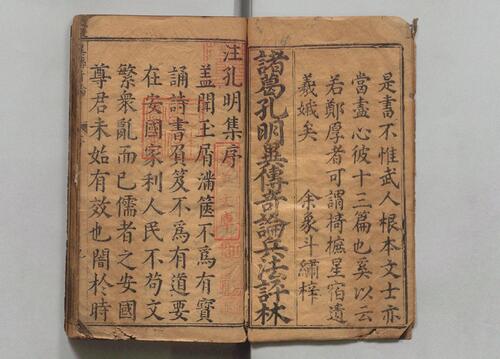 是書不惟武人根本文士亦
當盡心彼十三篇也奚以云
若鄭厚者可謂掎摭星宿遺
羲娥矣　余象斗繡梓
諸葛孔明異傳奇論兵法評林
注孔明集序
蓋聞王屑滿篋不為有寶
誦詩書負笈不為有道要
在安國家利人民不苟文
繁衆亂而已儒者之安國
尊君未始有效也闇於時